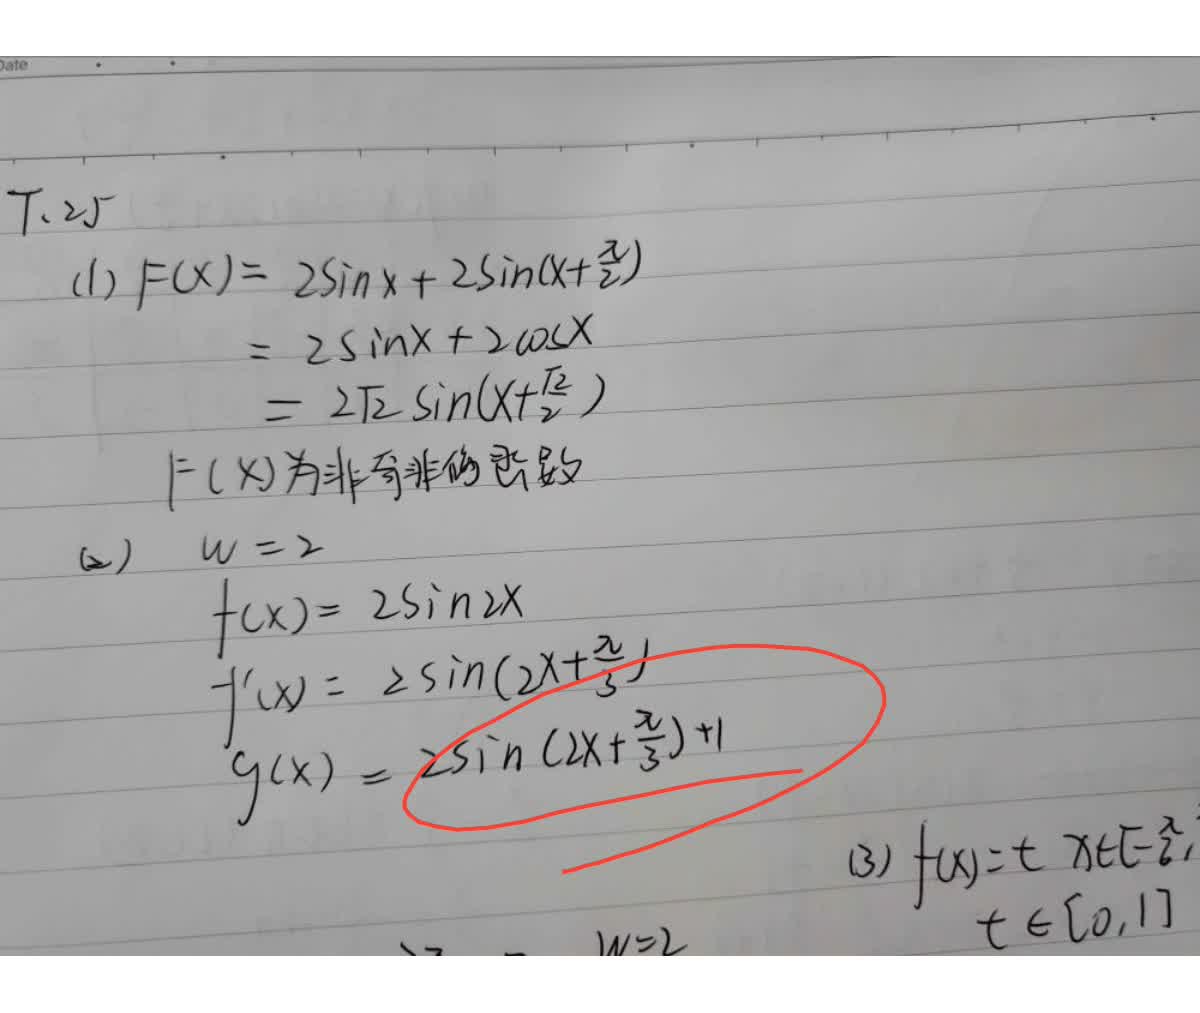 Date
T、25
(1) F(x) = 2sinx + 2sin(x+π/2)
= 2sinx + 2cosx
= 2√2 sin(x+√2/2)
F(x)为非奇非偶函数
(2) w = 2
f(x) = 2sin2x
f'(x) = 2sin(2x+π/3)
g(x) = 2sin(2x+π/3)+1
(3) f(x)=t x∈[-π/6,
t∈[0,1]
w=2